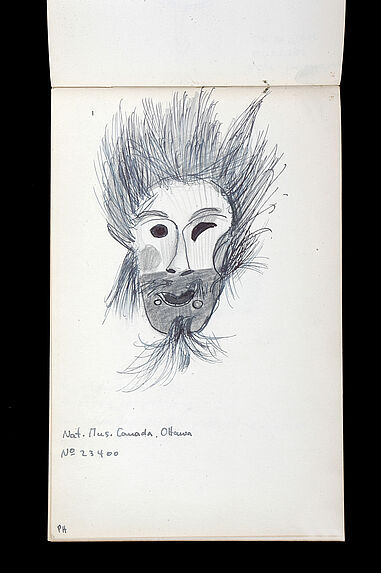 Nat. Mus. Canada, Ottawa
Nº 23400
PH